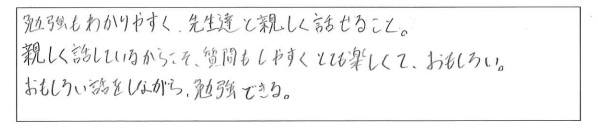 勉強もわかりやすく、先生達と親しく話せること。
親しく話しているからこそ、質問もしやすくとても楽しくて、おもしろい。
おもしろい話をしながら、勉強できる。